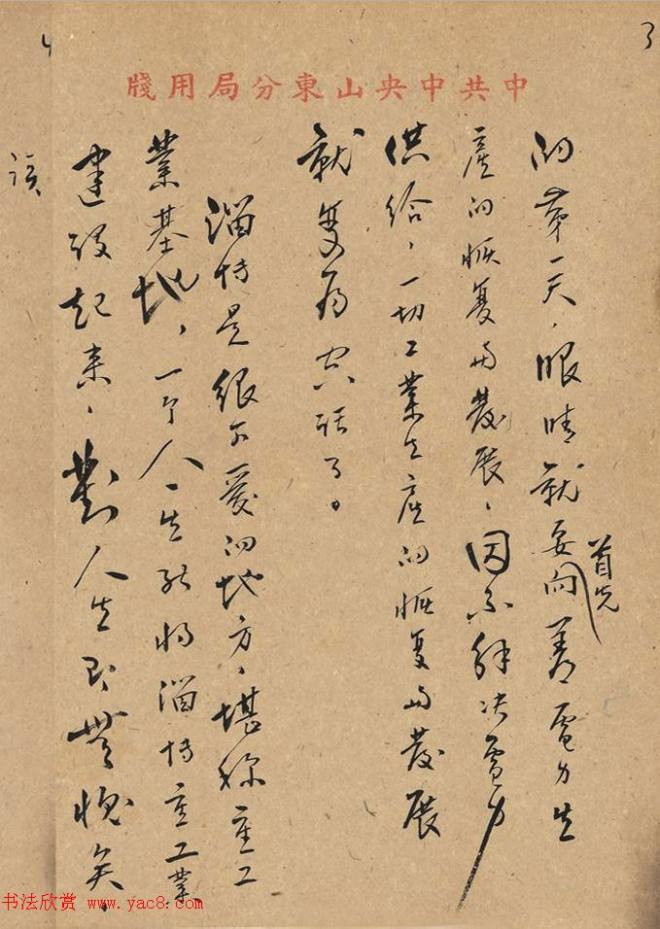 3
4
中共中央山東分局用牋
的第一天，眼睛就要首先向着電力生
產的恢复与發展，因不解决電力
供给，一切工業生產的恢复与發展
就变为空話了。
淄博是很可爱的地方，堪称重工
業基地，一个人一生能将淄博重工業
建設起来，對人生即無愧矣，
该
书法欣赏 www.yac8.com